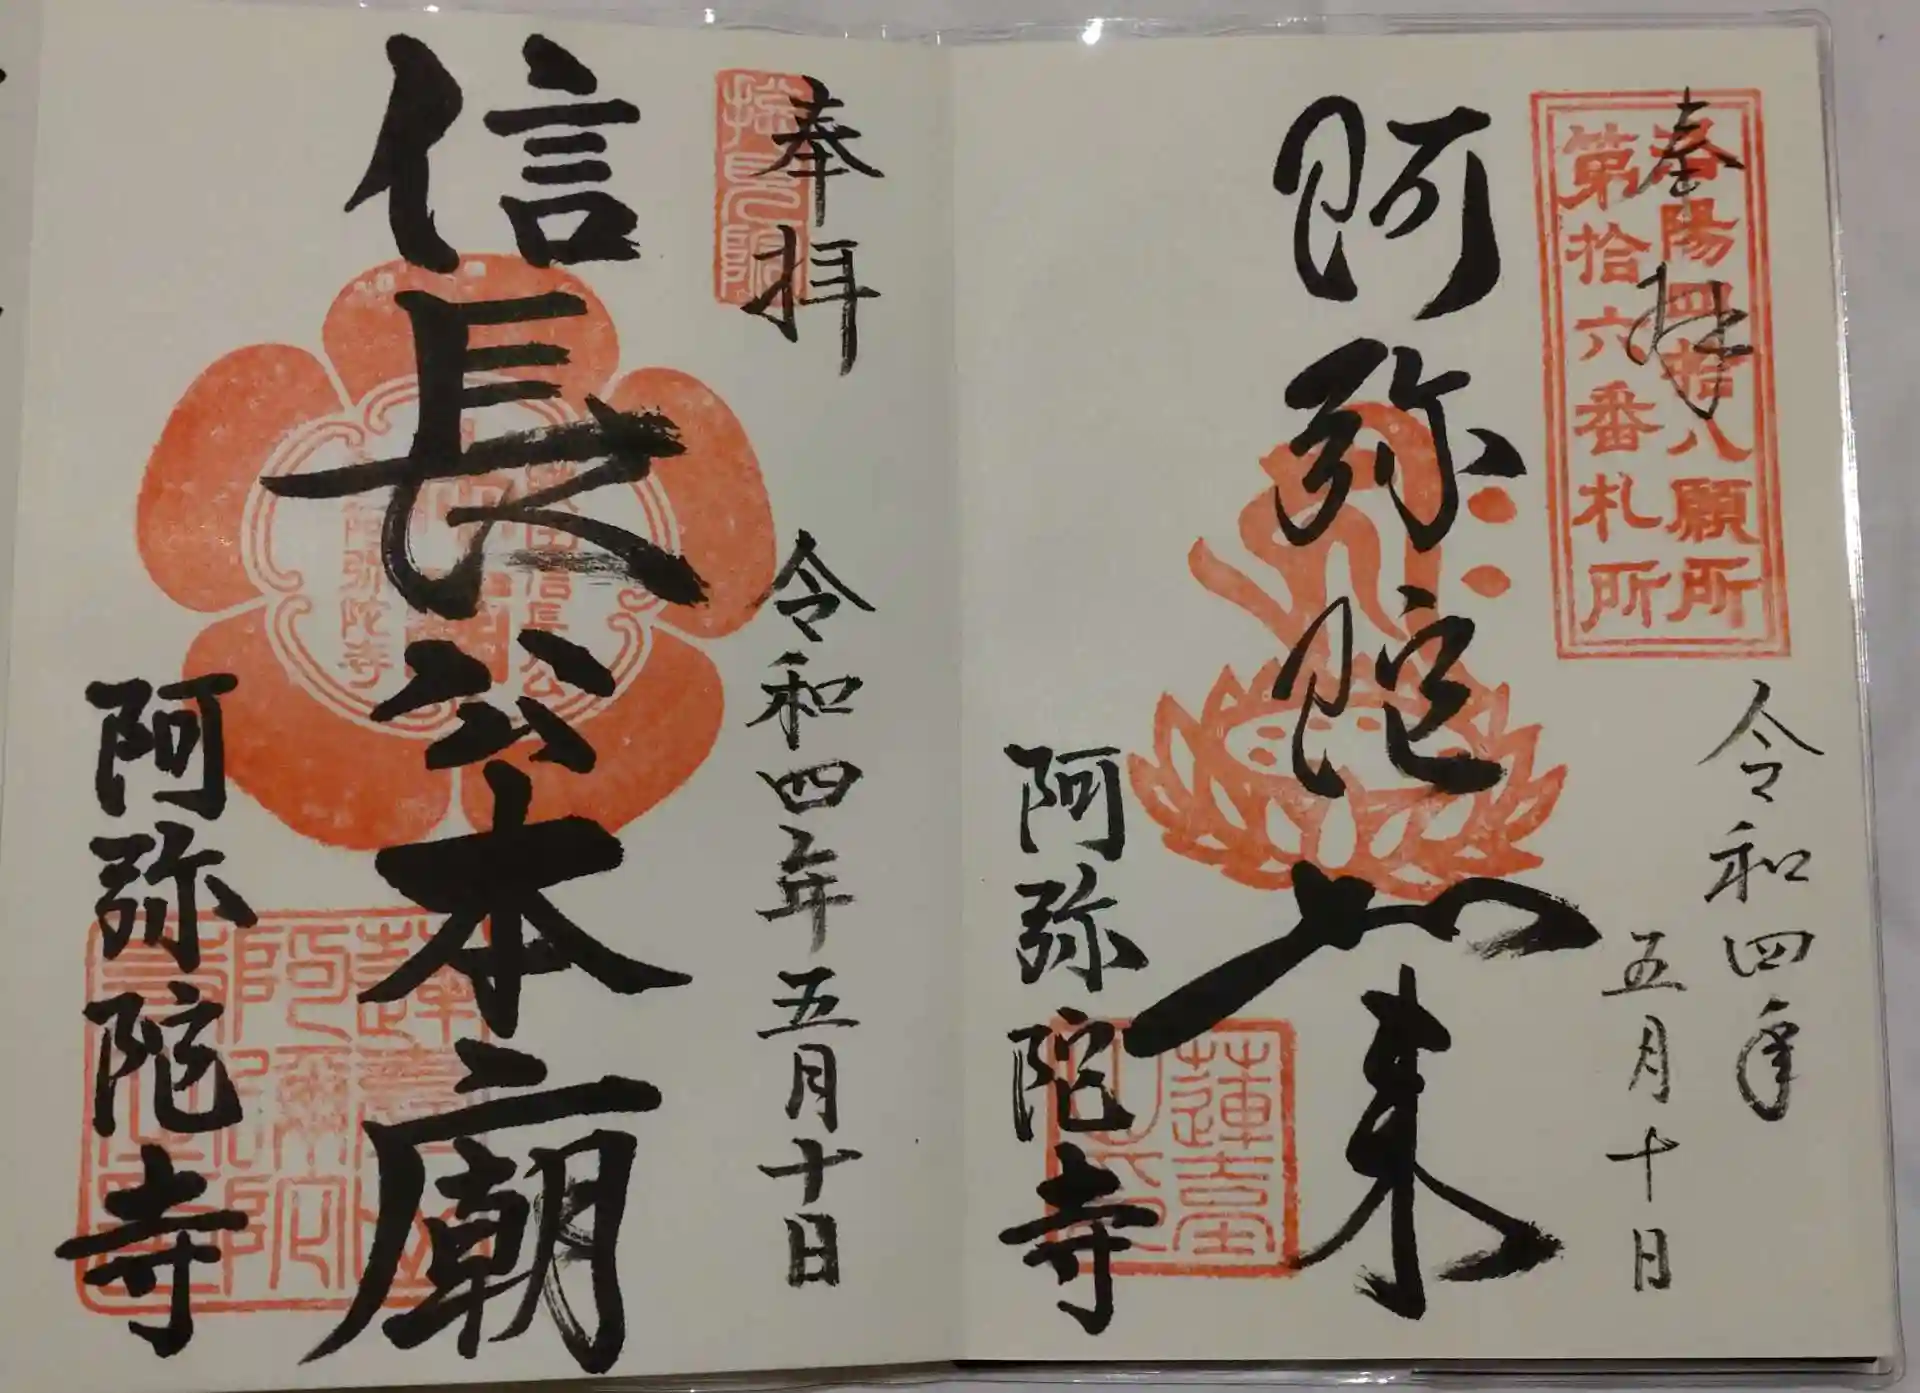 奉拝
洛陽四拾八願所
第拾六番札所
令和四年
五月十日
阿弥陀如来
蓮台
阿弥陀寺
奉拝
総見院
令和四年五月十日
信長公本廟
信長公
阿弥陀寺
阿弥陀寺